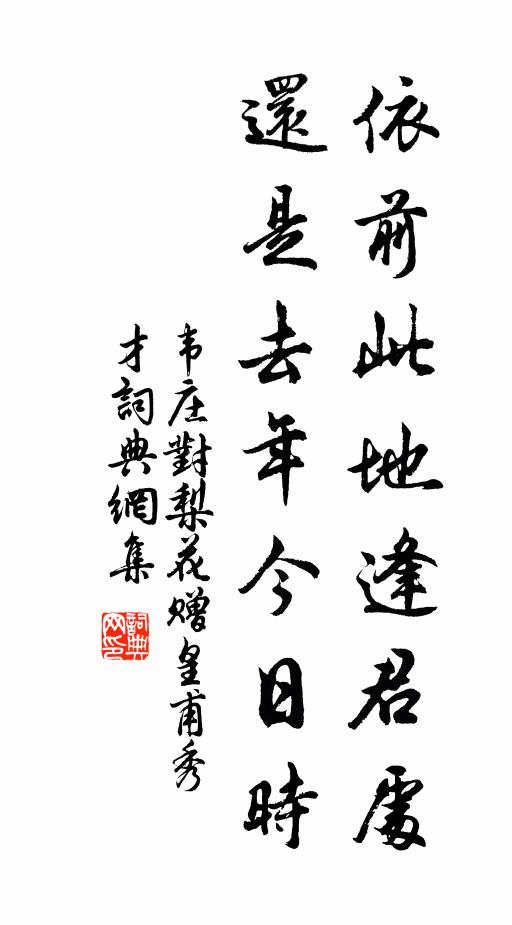 依前此地逢君處
還是去年今日時
韦庄對梨花赠皇甫秀
才詞典網集
詞典
网印